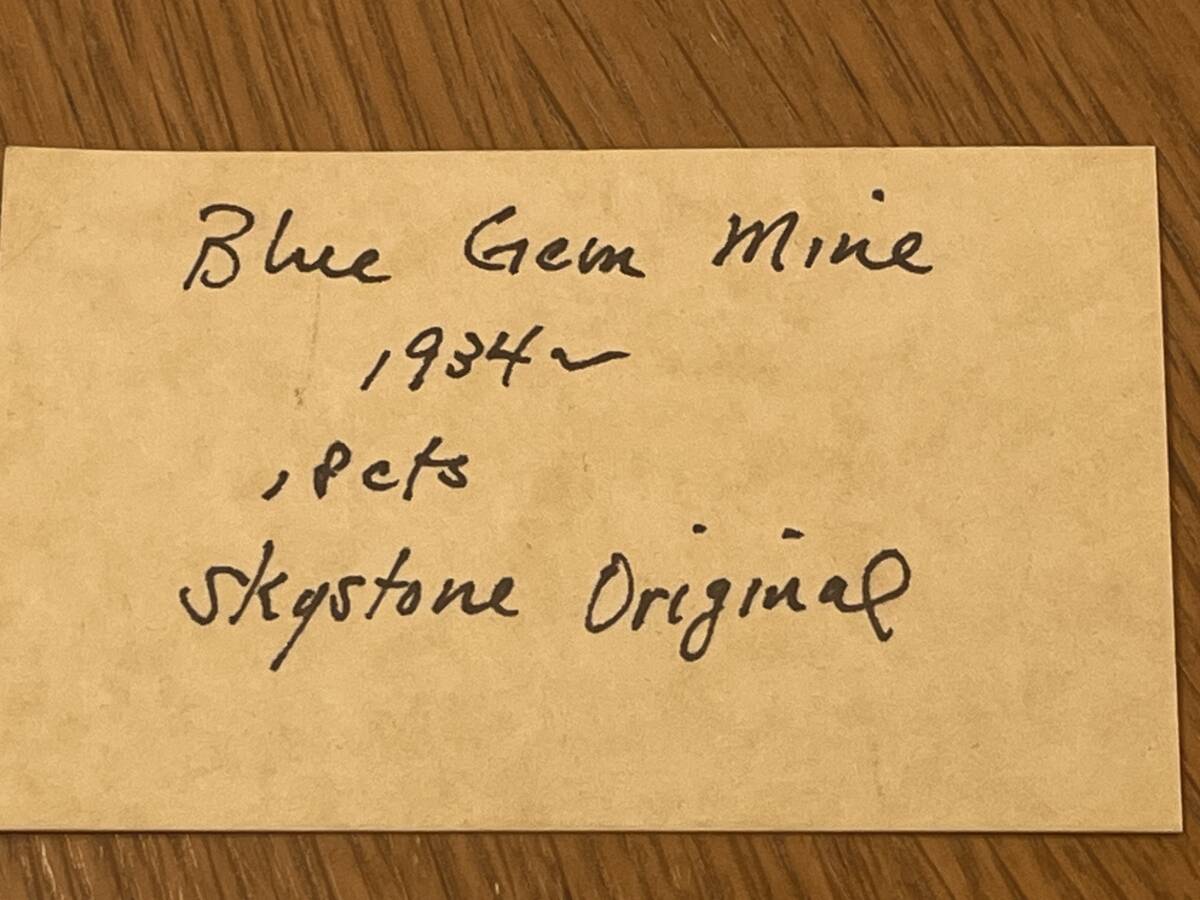 Blue Gem Mine
1934~
18cts
Skystone Original